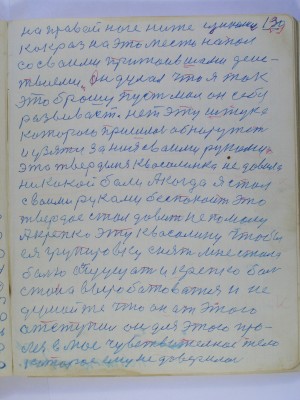 на правой ноге ниже щиколки (3)
как раз на это место напал
со своими притаившами дейс-
твиями. Он думал что я так
это брошу пусть мол он себя
развивает. нет эту штуку
которого пришлося обнаружит
и взять за ния своими руками
эта твердыня квасолинка не довала
никакой боли А когда я стал
своими руками беспокоит это
твердое стал давит не по малу
А крепко эту квасолину чтобы
ея групировку снят мне стало
болю слушат и крепко бол
стала вырабатоватся и не
думайте что он от этого
отступил он для этого про-
лез в мое чувствително тело
которое ему не доверялос